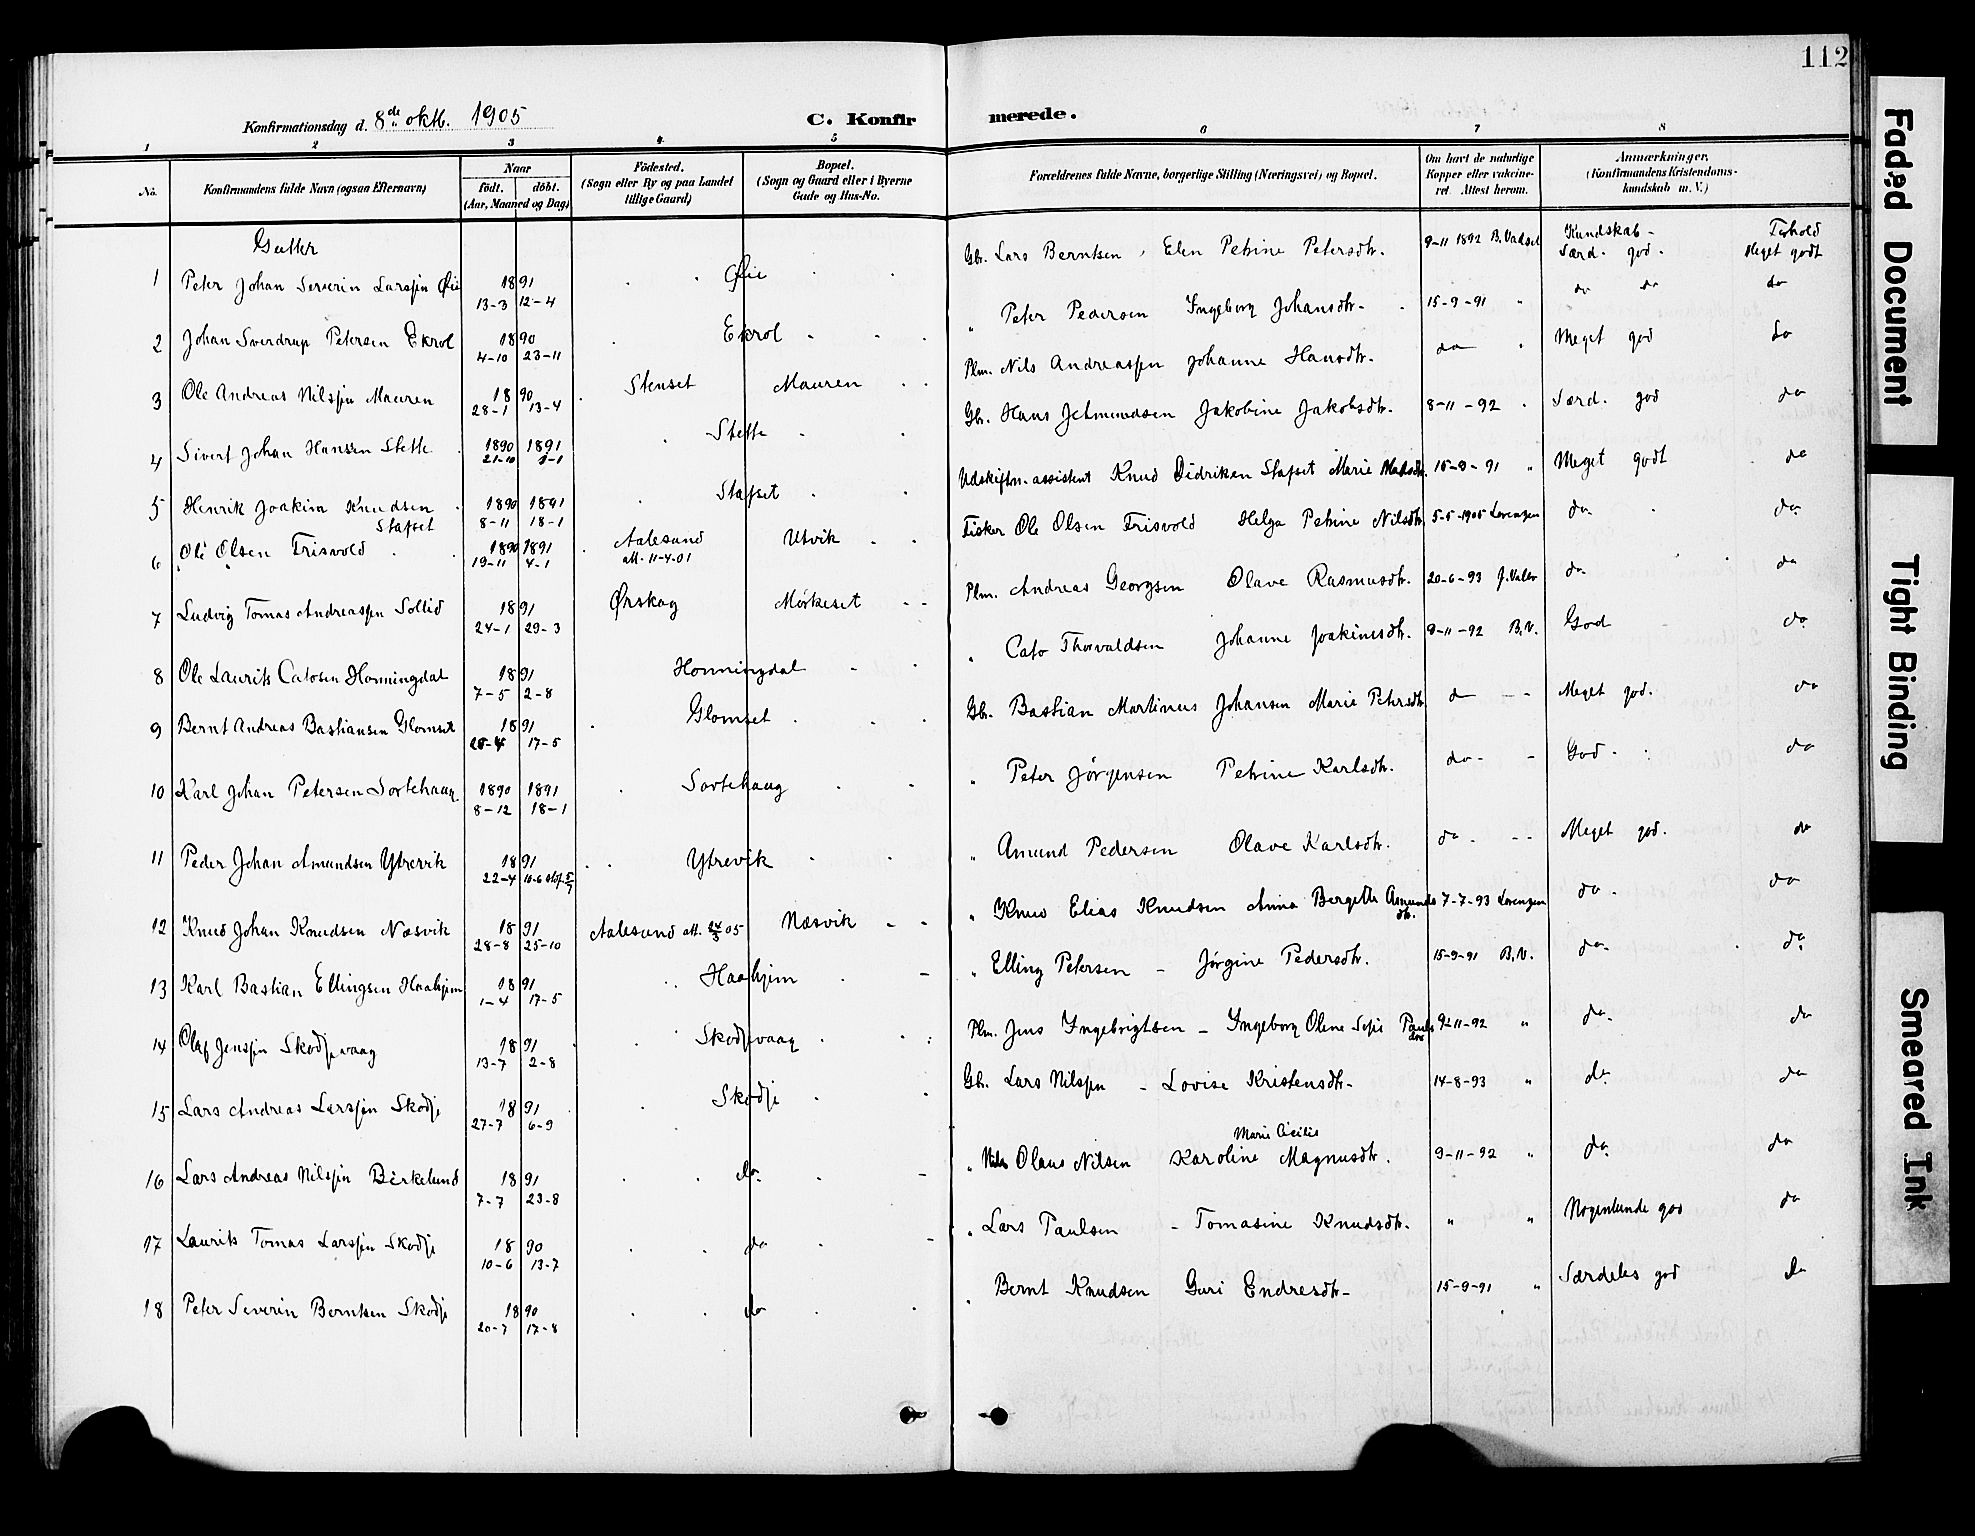 112
Konfirmationsdag d. 8de oktb. 1905
C. Konfirmerede.
1 2 3 4 5 6 7 8
No. Konfirmandens fulde Navn (ogsaa Efternavn) Naar født. døbt. (Aar, Maaned og Dag) Födested. (Sogn eller By og paa Landet tillige Gaard) Bopæl. (Sogn og Gaard eller i Byerne Gade og Hus-No. Forældrenes fulde Navne, borgerlige Stilling (Næringsvei) og Bopæl. Om havt de naturlige Kopper eller vakcineret. Attest herom. Anmærkninger. (Konfirmandens Kristendomskundskab m. V.)
Gutter
Kundskab - Forhold
1 Peter Johan Severin Larssen Øie 1891 13-3 12-4 Øie Gbr. Lars Berntsen, Elen Petrine Petersdtr. 9-11 1892 B. Vadset Særd. god. Meget godt
2 Johan Sverdrup Petersen Ekrol 1890 4-10 23-11 Ekrol " Peter Pedersen Ingeborg Johansdtr. 15-9-91 " do do do
3 Ole Andreas Nilssen Mauren 1890 28-1 13-4 Stenset Mauren Plm. Nils Andreassen Johanne Hansdtr. do Meget god do
4 Sivert Johan Hansen Stette 1890 1891 21-10 1-1 Stette Gbr. Hans Jetmundsen Jakobine Jakobsdtr. 8-11-92 Særd. god do
5 Henrik Joakim Knudsen Stafset 1890 1891 8-11 18-1 Stafset Udskiftn. assistent Knud Didriken Stafset Marie Madsdtr. 15-9-91 " Meget godt do
6 Ole Olsen Frisvold 1890 1891 19-11 4-1 Aalesund att. 11-4-01 Utvik Fisker Ole Olsen Frisvold Helga Petrine Nilsdtr. 5-5-1905 Lorenzen do. do.
7 Ludvig Tomas Andreassen Sollid 1891 24-1 29-3 Ørskog Mørkeset Plm. Andreas Georgsen Olave Rasmusdtr. 20-6-93 J. Valer do do
8 Ole Laurits Catosen Honningdal 1891 7-5 2-8 Honningdal " Cato Thorvaldsen Johanne Joakimsdtr. 9-11-92 B.V. God do
9 Bernt Andreas Bastiansen Glomset 1891 28-4 17-5 Glomset Gbr. Bastian Martinus Johansen Marie Petersdtr. do Meget god. do
10 Karl Johan Petersen Sortehaug. 1890 1891 8-12 18-1 Sortehaug " Peter Jørgensen Petrine Karlsdtr. do God. do
11 Peder Johan Amundsen Ytrevik 1891 22-4 10-6 Ytrevik " Amund Pedersen Olave Karlsdtr. do Meget god. do
12 Knud Johan Knudsen Næsvik 1891 28-8 25-10 Aalesund att. 05 Næsvik " Knud Elias Knudsen Anna Bergitte Asmundsdtr. 7-7-93 Lorenzen do. do
13 Karl Bastian Ellingsen Haahjem 1891 1-4 17-5 Haahjem " Elling Petersen - Jørgine Pedersdtr. 15-9-91 B.V. do. do
14 Olaf Jenssen Skodjevaag 1891 13-7 2-8 Skodjevaag Plm. Jens Ingebrigtsen - Ingeborg Oline Pauls dtr 9-11-92 " do. do
15 Lars Andreas Larssen Skodje 1891 27-7 6-9 Skodje Gbr. Lars Nilssen - Lovise Kristensdtr. 14-8-93 " do do
16 Lars Andreas Nilssen Birkelund 1891 7-7 23-8 do. " Nils Olaus Nilsen Marie Cicilie Karoline Magnusdtr. 9-11-92 " do. do
17 Laurits Tomas Larssen Skodje 1890 10-6 13-7 do " Lars Paulsen - Tomasine Knudsdtr. " " Nogenlunde god do
18 Peter Severin Berntsen Skodje 1890 20-7 17-8 do " Bernt Knudsen Guri Endresdtr. 15-9-91 " Særdeles god do
Faded Document
Tight Binding
Smeared Ink